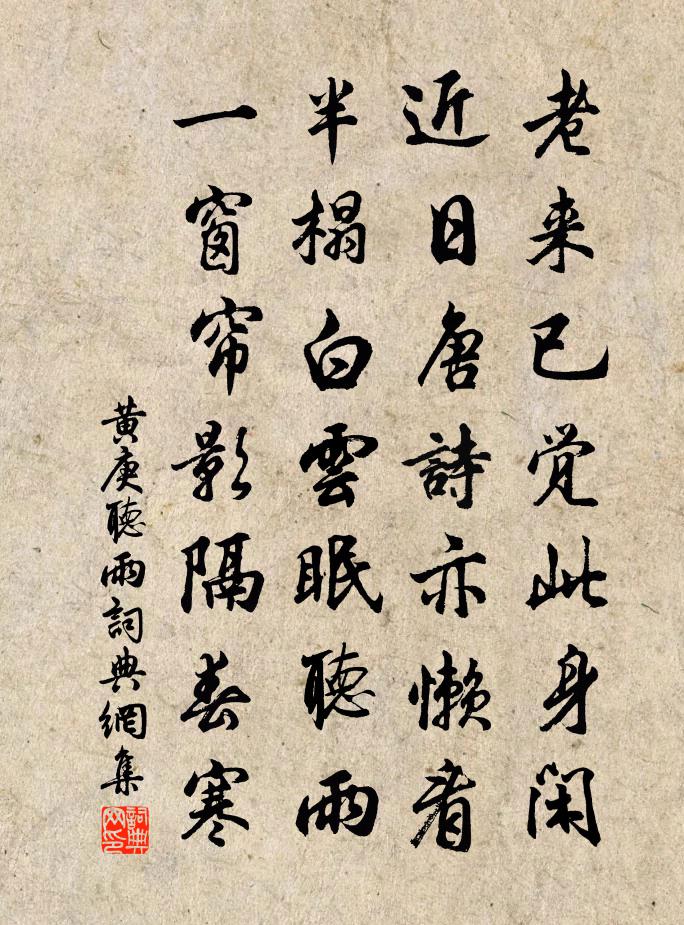 老来已觉此身闲
近日唐詩亦懒看
半榻白雲眠聽雨
一窗帘影隔春寒
黄庚聽雨詞典網集
詞典网印